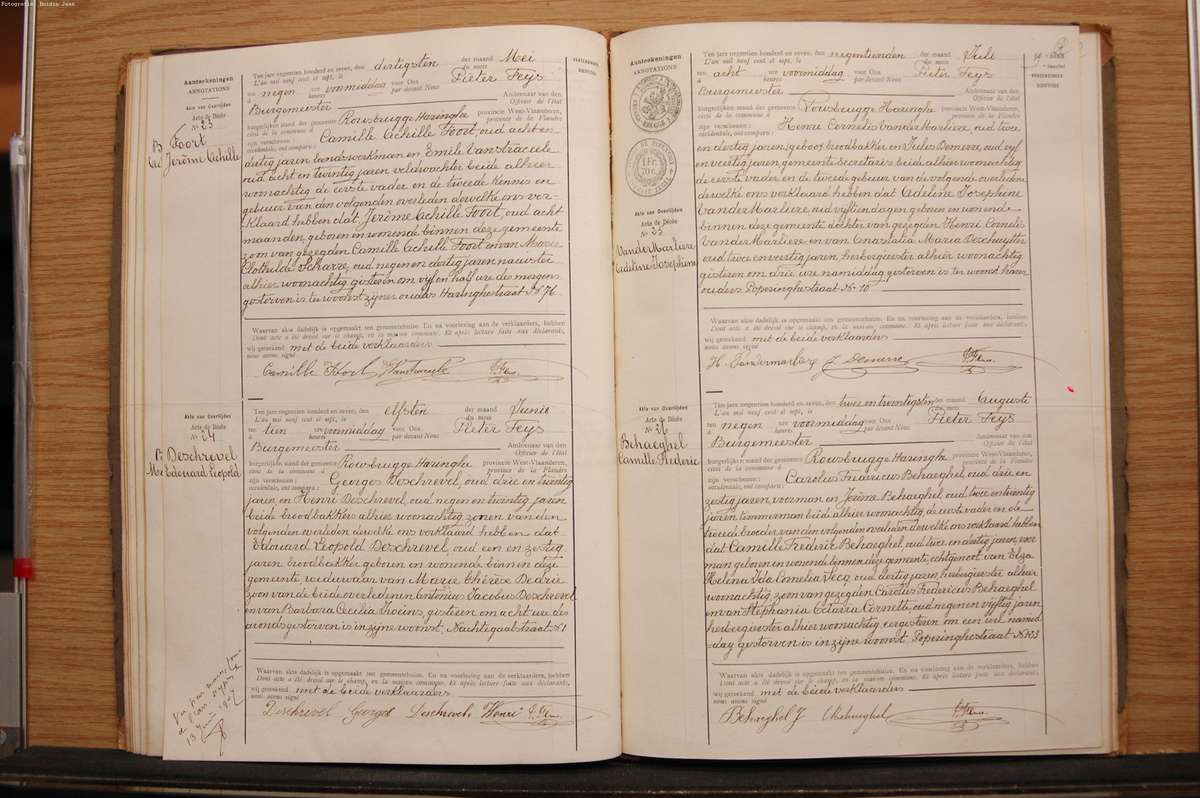 Fotografie: Boidin Jean
Aanteekeningen
ANNOTATIONS
Akte van Overlijden
Acte de Décès
N° 23
Foort
Jérôme Achille
Ten jare negentien honderd en zeven, den dertigsten der maand Mei
L'an mil neuf cent et sept, le du mois
ten negen ure voormiddag voor Ons Pieter Feys
à heures par devant Nous
Burgemeester Ambtenaar van den
Officier de l'état
burgerlijken stand der gemeente Rousbrugge Haringhe provincie West-Vlaanderen,
civil de la commune d province de la Flandre
zijn verschenen : Camille Achille Foort, oud acht en
occidentale, ont comparu :
dertig jaren landswerkman en Emile Vanstraceele
oud acht en twintig jaren veldwachter beide alhier
woonachtig de eerste vader en de tweede kennis en
gebuur van den volgenden overleden dewelke ons ver-
klaard hebben dat Jerôme Achille Foort, oud acht
maanden, geboren en wonende binnen deze gemeente
zoon van gezegden Camille Achille Foort en van Marie
Clothilde Scharre, oud negen en dertig jaren, naaister
alhier woonachtig gisteren om vijf en half ure des morgens
gestorven is ter woonst zijner ouders Haringhestraat N° 76
Waarvan akte dadelijk is opgemaakt ten gemeentehuize. En na voorlezing aan de verklaarders, hebben
Dont acte a été dressé sur le champ, en la maison commune. Et après lecture faite aux déclarants,
wij geteekend met de beide verklaarders
nous avons signé
Camille Foort
Akte van Overlijden
Acte de Décès
N° 24
Deschrevel
Edouard Leopold
Ten jare negentien honderd en zeven, den elfsten der maand Junie
L'an mil neuf cent et sept, le du mois
ten tien ure voormiddag voor Ons Pieter Feys
à heures par devant Nous
Burgemeester Ambtenaar van den
Officier de l'état
burgerlijken stand der gemeente Rousbrugge Haringhe provincie West-Vlaanderen,
civil de la commune d province de la Flandre
zijn verschenen : Georges Deschrevel, oud drie en twintig
occidentale, ont comparu :
jaren en Henri Deschrevel, oud negen en twintig jaren
beide broodbakkers alhier woonachtig zonen van den
volgenden overleden dewelke ons verklaard hebben dat
Edouard Leopold Deschrevel, oud een en zestig
jaren broodbakker geboren en wonende binnen deze
gemeente weduwaar van Marie Thérèse Dedrie
zoon van de beide overledenen Antonius Jacobus Deschrevel
en van Barbara Cecilia gisteren om acht ure des
avonds gestorven is in zijne woonst, Nachtegaalstraat N° 1
Waarvan akte dadelijk is opgemaakt ten gemeentehuize. En na voorlezing aan de verklaarders, hebben
Dont acte a été dressé sur le champ, en la maison commune. Et après lecture faite aux déclarants,
wij geteekend met de beide verklaarders
nous avons signé
Deschrevel Georges Deschrevel Henri
Aanteekeningen
ANNOTATIONS
1 Fr.
Akte van Overlijden
Acte de Décès
N° 25
VanderMarliere
Adeline Josephine
Ten jare negentien honderd en zeven, den negentienden der maand Juli
L'an mil neuf cent et sept, le du mois
ten acht ure voormiddag voor Ons Pieter Feys
à heures par devant Nous
Burgemeester Ambtenaar van den
Officier de l'état
burgerlijken stand der gemeente Rousbrugge Haringhe provincie West-Vlaanderen,
civil de la commune d province de la Flandre
zijn verschenen : Henri Cornelis VanderMarliere, oud twee
occidentale, ont comparu :
en dertig jaren, broodbakker en Jules Demerre, oud vijf
en veertig jaren, gemeente Secretaris beide alhier woonachtig
de eerste vader en de tweede gebuur van de volgende overledene
dewelke ons verklaard hebben dat Adeline Josephine
VanderMarliere oud vijftien dagen geboren en wonende
binnen deze gemeente dochter van gezegden Henri Cornelis
VanderMarliere en van Anastasia Maria Deschuytter
oud twee en veertig jaren, herbergierster alhier woonachtig
gisteren om drie ure namiddag gestorven is ter woonst harer
ouders Poperinghestraat N° 10
Waarvan akte dadelijk is opgemaakt ten gemeentehuize. En na voorlezing aan de verklaarders, hebben
Dont acte a été dressé sur le champ, en la maison commune. Et après lecture faite aux déclarants,
wij geteekend met de beide verklaarders
nous avons signé
J. Demerre
Akte van Overlijden
Acte de Décès
N° 26
Behaeghel
Camille Frederic
Ten jare negentien honderd en zeven, den twee en twintigsten der maand Augusti
L'an mil neuf cent et sept, le du mois
ten negen ure voormiddag voor Ons Pieter Feys
à heures par devant Nous
Burgemeester Ambtenaar van den
Officier de l'état
burgerlijken stand der gemeente Rousbrugge Haringhe provincie West-Vlaanderen,
civil de la commune d province de la Flandre
zijn verschenen : Carolus Fredricus Behaeghel, oud drie en
occidentale, ont comparu :
zestig jaren, voerman en Jerôme Behaeghel, oud twee en twintig
jaren, timmerman beide alhier woonachtig, de eerste vader en de
tweede broeder van den volgenden overleden dewelke ons verklaard hebben
dat Camille Frederic Behaeghel oud twee en dertig jaren, voer
man geboren en wonende binnen deze gemeente, echtgenoot van Elza
Helena Ida Cornelia Secq oud dertig jaren, herbergierster alhier
woonachtig, zoon van gezegden Carolus Fredericus Behaeghel
en van Stephania Octavia Cornette, oud negen en vijftig jaren
herbergierster alhier woonachtig eergisteren om een ure namid-
dag gestorven is in zijne woonst, Poperinghestraat N° 33
Waarvan akte dadelijk is opgemaakt ten gemeentehuize. En na voorlezing aan de verklaarders, hebben
Dont acte a été dressé sur le champ, en la maison commune. Et après lecture faite aux déclarants,
wij geteekend met de beide verklaarders
nous avons signé
Behaeghel J Behaeghel